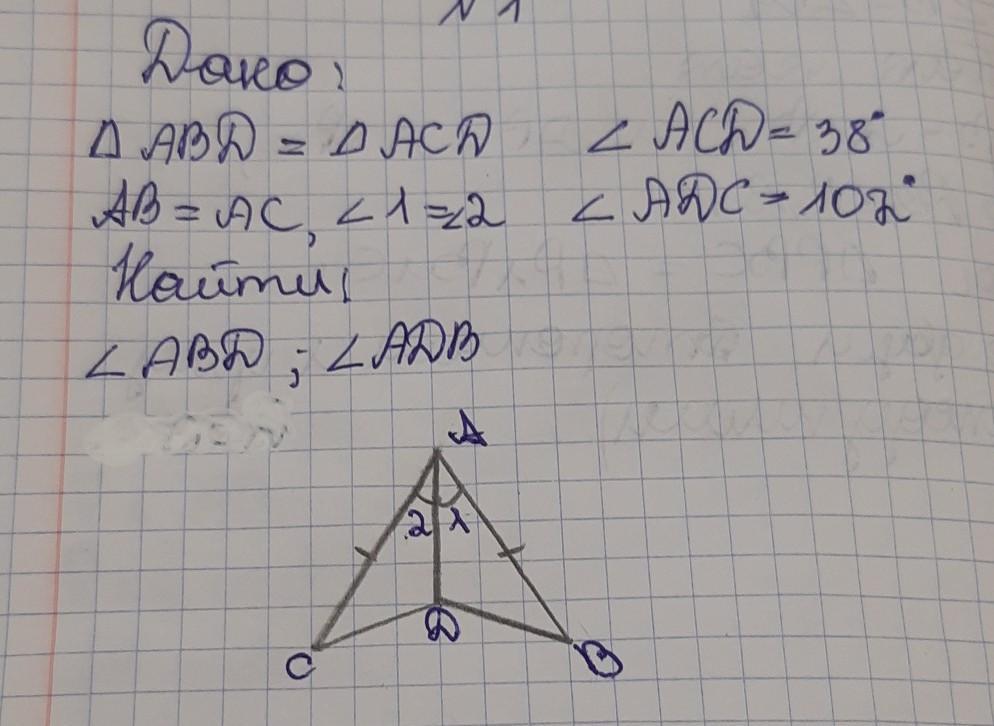 N 1
Дано:
Δ ABD = Δ ACD ∠ ACD = 38°
AB = AC, ∠1 = ∠2 ∠ ADC = 102°
Найти:
∠ ABD ; ∠ADB
A
2 1
D
C B